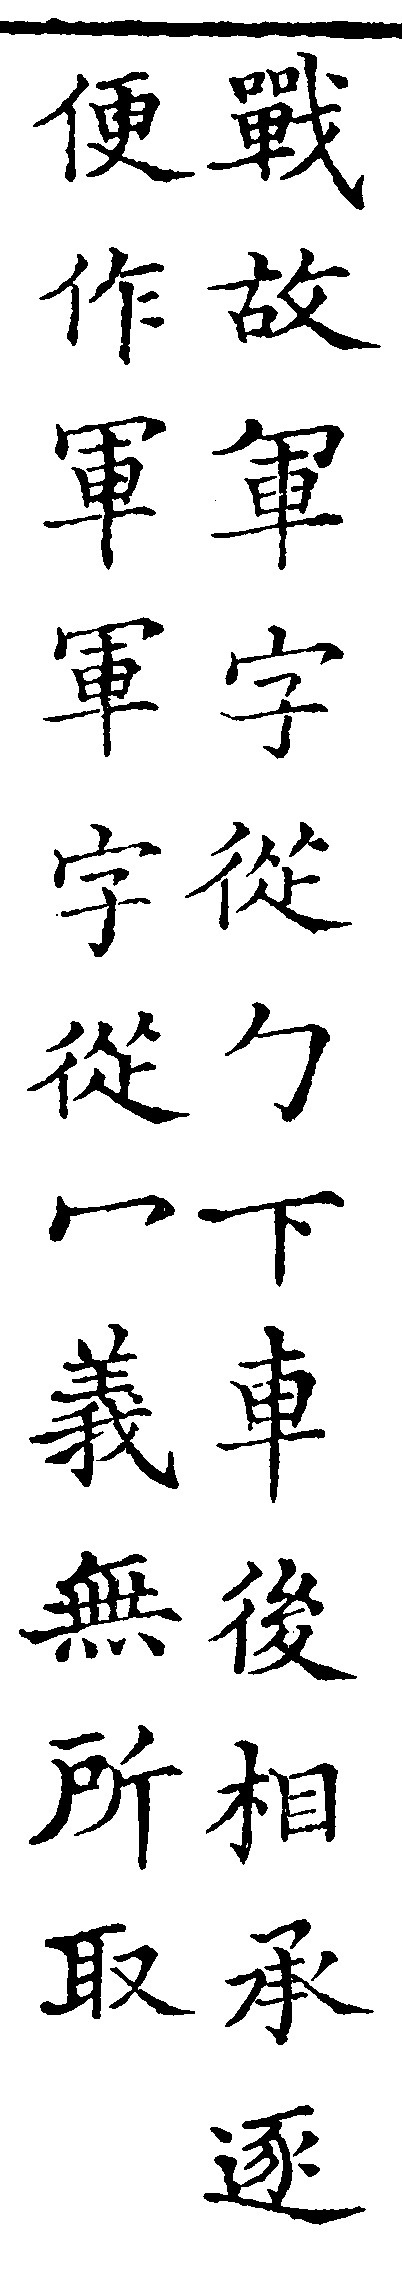 戰故軍字從勹下車後相承逐
便作軍軍字從冖義無所取